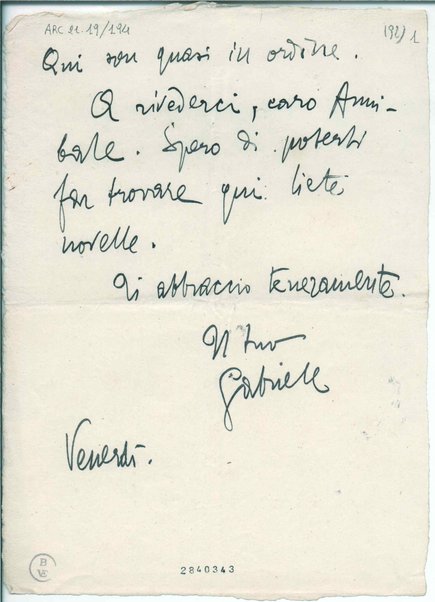 ARC 21.19/194
192/1
Qui son quasi in ordine.
A rivederci, caro Anni-
bale. Spero di poterti
far trovare qui liete
novelle.
Ti abbraccio teneramente.
Il tuo
Gabriele
Venerdì.
B
VE
2840343